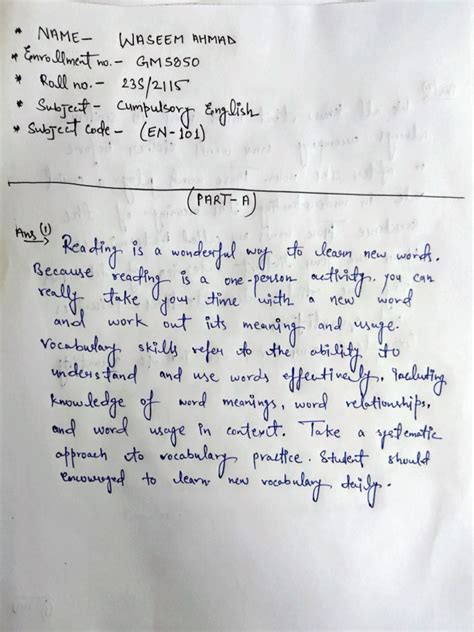 * NAME- WASEEM AHMAD
* Enrollment no.- GM5850
* Roll no.- 23S/2115
* Subject- Cumpulsory English
* Subject code- (EN-101)
(PART-A)
Ans (1) Reading is a wonderful way to learn new words.
Because reading is a one-person activity. you can
really take your time with a new word
and work out its meaning and usage.
Vocabulary skills refer to the ability to
understand and use words effectively, including
knowledge of word meanings, word relationships,
and word usage in context. Take a systematic
approach to vocabulary practice. Student should
encouraged to learn new vocabulary daily.